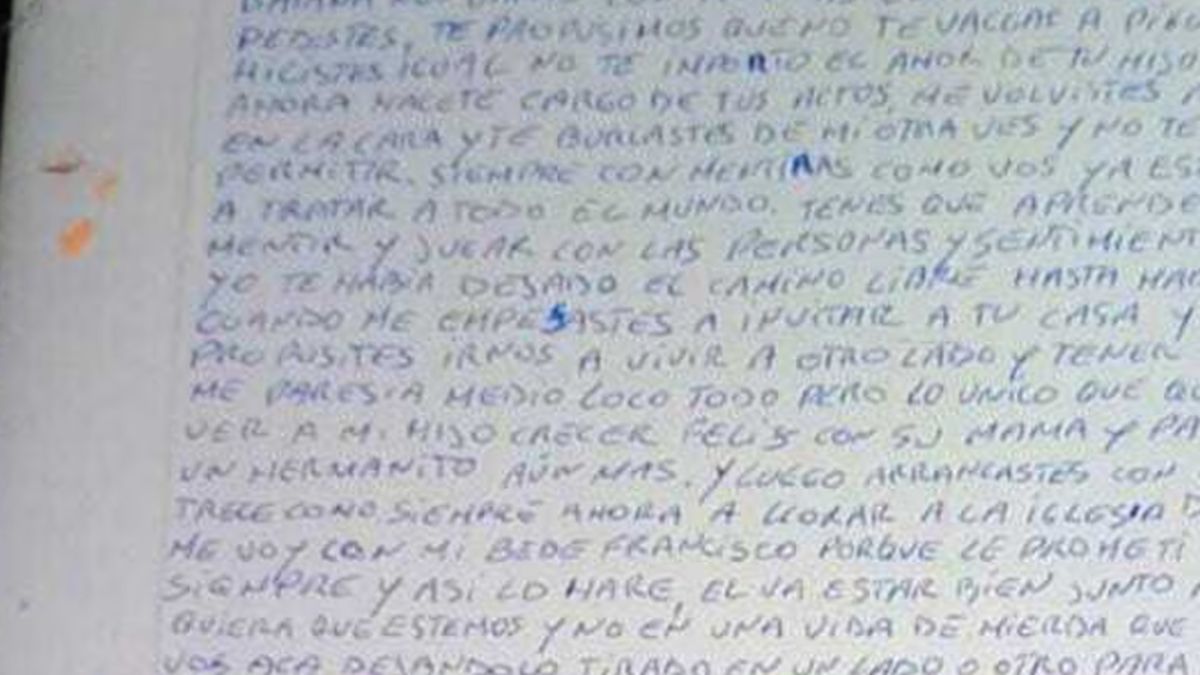 PEDISTES, TE PROPUSIMOS QUE NO TE VALLAS A
HICISTES IGUAL NO TE INPORTO EL AMOR DE TU HIJO
AHORA HACETE CARGO DE TUS ACTOS, ME VOLVISTES A
EN LA CARA Y TE BURLASTES DE MI OTRA VES Y NO TE
PERMITIR. SIEMPRE CON MENTIRAS COMO VOS YA ES
A TRATAR A TODO EL MUNDO. TENES QUE APRENDE
MENTIR Y JUGAR CON LAS PERSONAS Y SENTIMIENT
YO TE HABIA DEJADO EL CAMINO LIBRE HASTA HA
CUANDO ME EMPESASTES A INVITAR A TU CASA Y
PROPUSITES IRNOS A VIVIR A OTRO LADO Y TENER
ME PARESIA MEDIO LOCO TODO PERO LO UNICO QUE Q
VER A MI HIJO CRECER FELIS CON SU MAMA Y PA
UN HERMANITO AÚN MAS. Y LUEGO ARRANCASTES CON
TRECE COMO SIEMPRE AHORA A LLORAR A LA IGLESIA
ME VOY CON MI BEBE FRANCISCO PORQUE LE PROMETI
SIEMPRE Y ASI LO HARE, EL VA ESTAR BIEN JUNTO
QUIERA QUE ESTEMOS Y NO EN UNA VIDA DE MIERDA QUE
VOS ACA DEJANDOLO TIRADO EN UN LADO O OTRO PARA